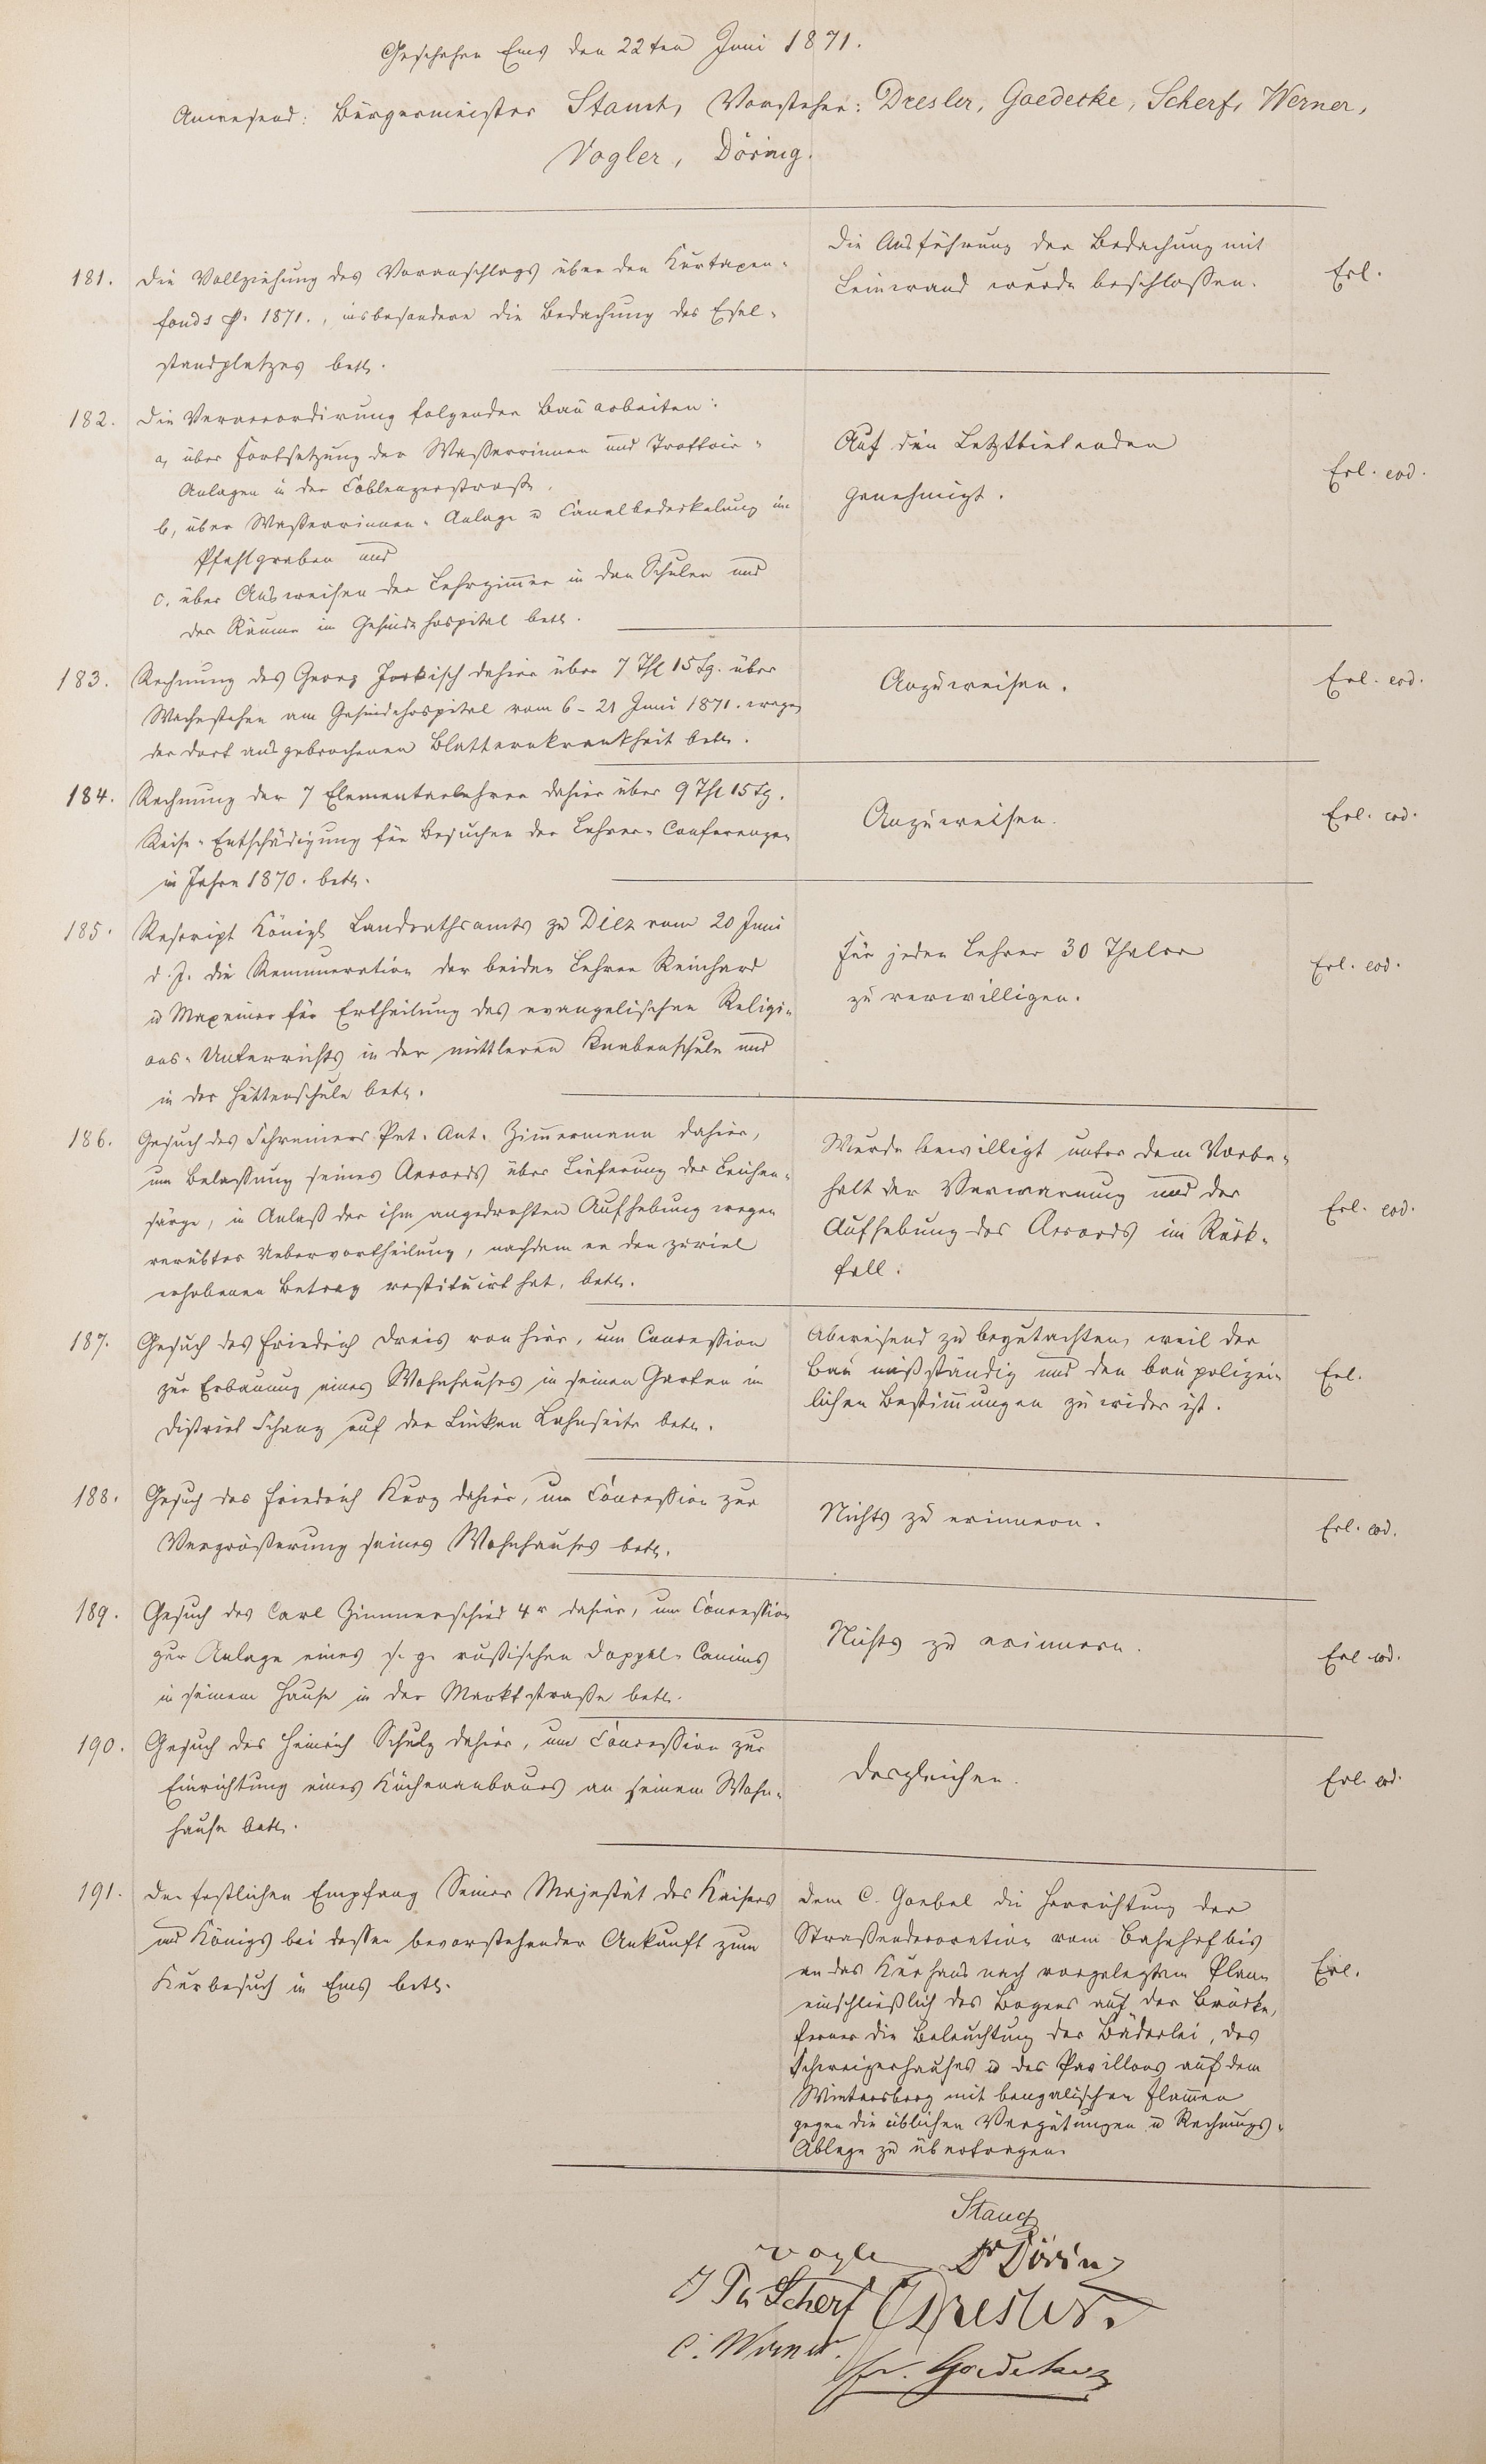 Geschehen Ems den 22ten Juni 1871.
Anwesend: Bürgermeister Stamt, Vorsteher: Dresler, Goedecke, Scherf, Werner,
Vogler, Döring.
181.
Die Vollziehung des Voranschlags über den Kurtaxen-
fonds p. 1871., insbesondere die Bedachung des Esel-
standplatzes betr.
Die Ausführung der Bedachung mit
Leinwand wurde beschlossen.
Erl.
182.
Die Veraccordirung folgender Bauarbeiten:
a, über Fortsetzung der Wasserrinnen und Trottoir-
Anlagen in der Coblenzerstraße.
b, über Wasserrinnen-Anlage u Canalbedeckelung im
Pfahlgraben und
c. über Ausweisen der Lehrzimmer in den Schulen und
der Räume im Gesindehospital betr.
Auf den Letztbietenden
genehmigt.
Erl. eod.
183.
Rechnung des Georg dahier über 7 Thl 15 Sg. über
Wachestehen am Gesindehospital vom 6-21 Juni 1871. wegen
der dort ausgebrochenen Blatternkrankheit betr.
Anzuweisen.
Erl. eod.
184.
Rechnung der 7 Elementarlehrer dahier über 9 Thl 15 Sg.
Reise-Entschädigung für Besuchen der Lehrer-Conferenzen
im Jahre 1870. betr.
Anzuweisen.
Erl. eod.
185.
Rescript Königl Landrathsamts zu Diez vom 20 Juni
d. J. die Remuneration der beiden Lehrer Reinhard
u Maxeiner für Ertheilung des evangelischen Religi-
ons-Unterrichts in der mittleren Knabenschule und
in der Hüttenschule betr.
Für jeden Lehrer 30 Thaler
zu verwilligen.
Erl. eod.
186.
Gesuch des Schreiners Pet. Ant. Zimmermann dahier,
um Belassung seines Accords über Lieferung der Leichen-
särge, in Anlaß der ihm angedrohten Aufhebung wegen
verübter Uebervortheilung, nachdem er den zuviel
erhobenen Betrag restituirt hat, betr.
Wurde bewilligt unter dem Vorbe-
halt der Verwarnung und der
Aufhebung des Accords im Rück-
fall.
Erl. eod.
187.
Gesuch des Friedrich Dreis von hier, um Concession
zur Erbauung eines Wohnhauses in seinem Garten im
District Schanz auf der Linken Lahnseite betr.
Abweisend zu begutachten, weil der
Bau mißständig und den baupolizei-
lichen Bestimmungen zuwider ist.
Erl.
188.
Gesuch des Friedrich Kurz dahier, um Concession zur
Vergrößerung seines Wohnhauses betr.
Nichts zu erinnern.
Erl. eod.
189.
Gesuch des Carl Zimmerschied 4r dahier, um Concession
zur Anlage eines s. g. russischen Doppel-Camins
in seinem Hause in der Marktstraße betr.
Nichts zu erinnern.
Erl eod.
190.
Gesuch des Heinrich Schulz dahier, um Concession zur
Einrichtung eines Küchenanbaues an seinem Wohn-
hause betr.
Desgleichen.
Erl. eod.
191.
Den festlichen Empfang Seiner Majestät des Kaisers
und Königs bei dessen bevorstehender Ankunft zum
Kurbesuch in Ems betr.
Dem C. Goebel die Herrichtung der
Straßendecoration vom Bahnhof bis
an das Kurhaus nach vorgelegtem Plane
einschließlich des Bogens auf der Brücke,
ferner die Beleuchtung der Bäderlei, des
Schweizerhauses u des Pavillons auf dem
Wintersberg mit bengalischen Flammen
gegen die üblichen Vergütungen u Rechnungs-
Ablage zu übertragen.
Erl.
Vogler Dr Döring
J Ph Scherf Dresler.
C. Werner.
Fr. Goedecke